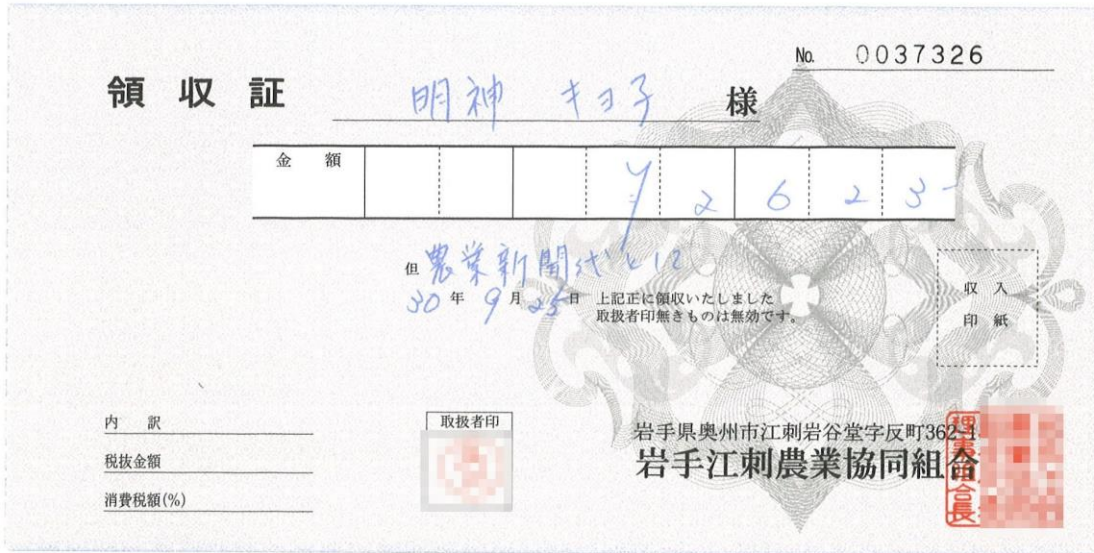 No. 0037326
領収証 明神 キヨ子 様
金額 ¥2623-
但 農業新聞代として
30年9月25日 上記正に領収いたしました
取扱者印無きものは無効です。
収入
印紙
内訳
税抜金額
消費税額(%)
取扱者印
岩手県奥州市江刺岩谷堂字反町362-1
岩手江刺農業協同組合